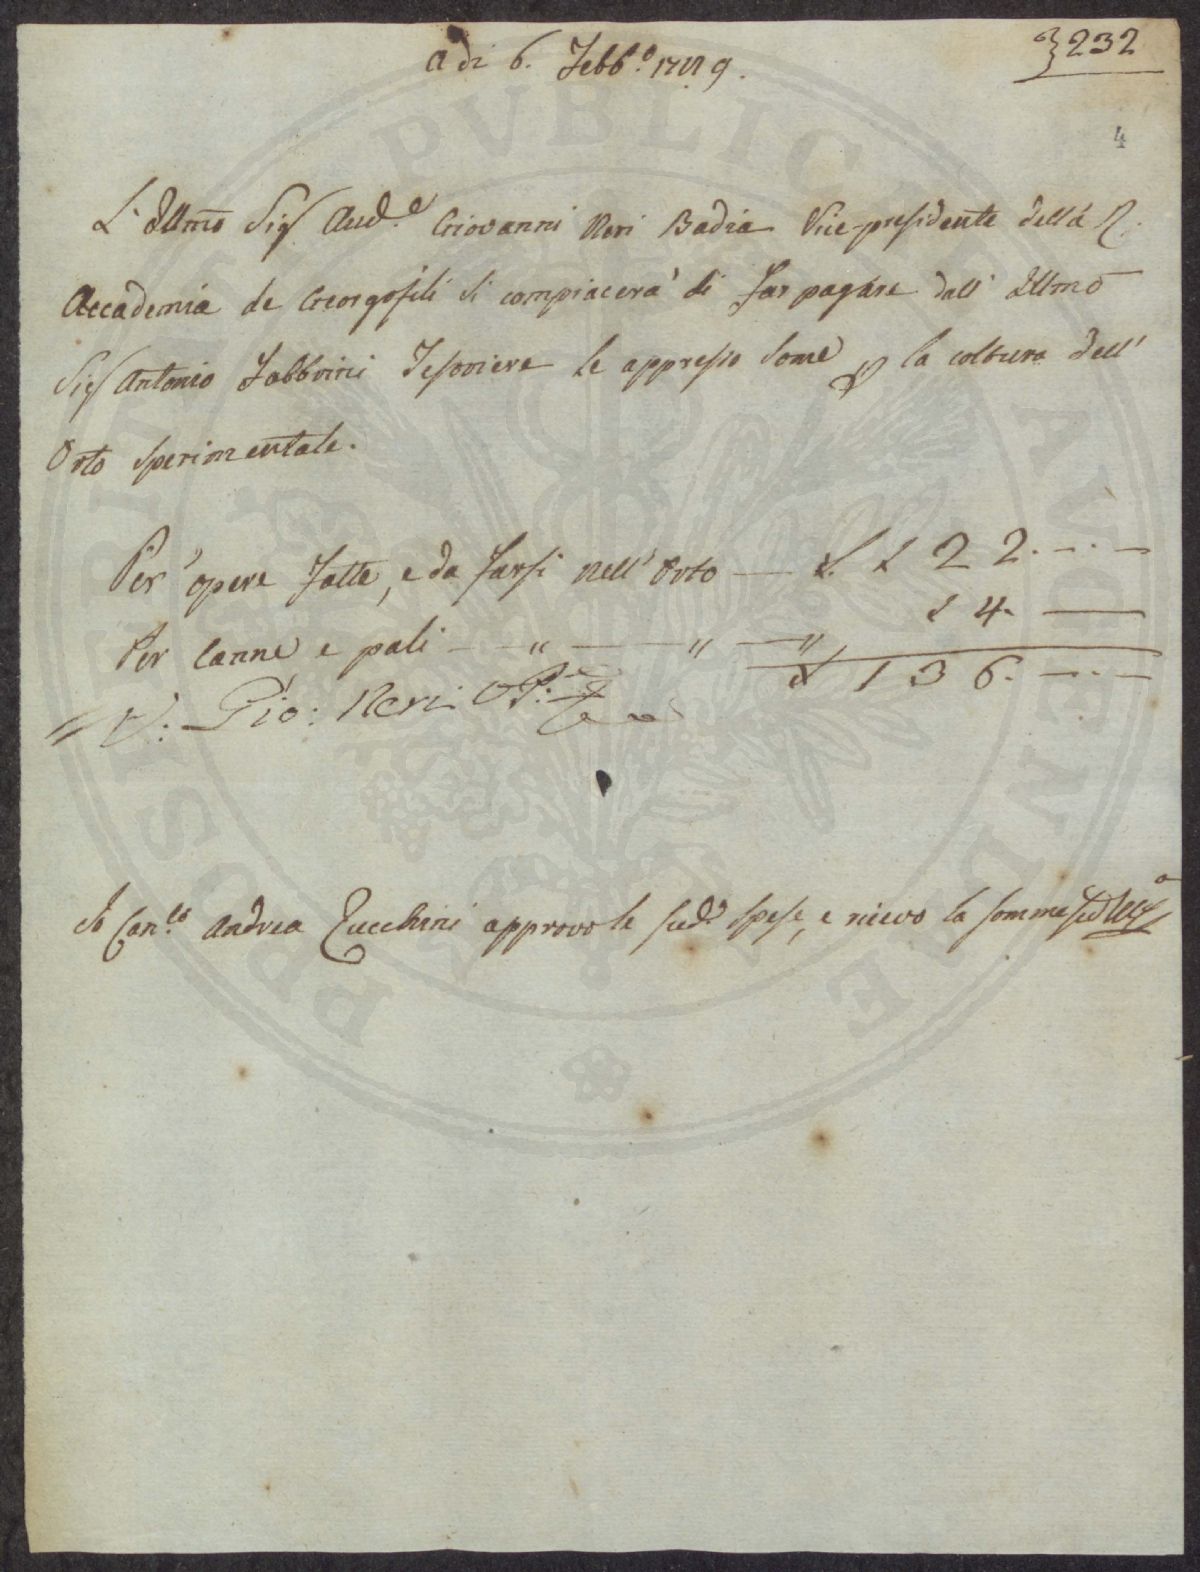 232
a di 6. Febb.o 1789.
4
L' Illmo Sig Aud.e Giovanni Neri Badia Vice-presidente della R.
Accademia de Georgofili si compiacerà di far pagare dall' Illmo
Sig Antonio Fabbrini Tesoriere le appresso some la coltura dell'
Orto sperimentale.
Per opere fatte, e da farsi nell' Orto — £. 122. — . —
Per canne e pali — — " — — " — " 14. —
£ 136. — . —
V: Gio: Neri
Io Can.co Andrea Zucchini approvo le sud.e spese, e ricevo la somma
PROSPERITATI PUBLICAE AUGENDAE